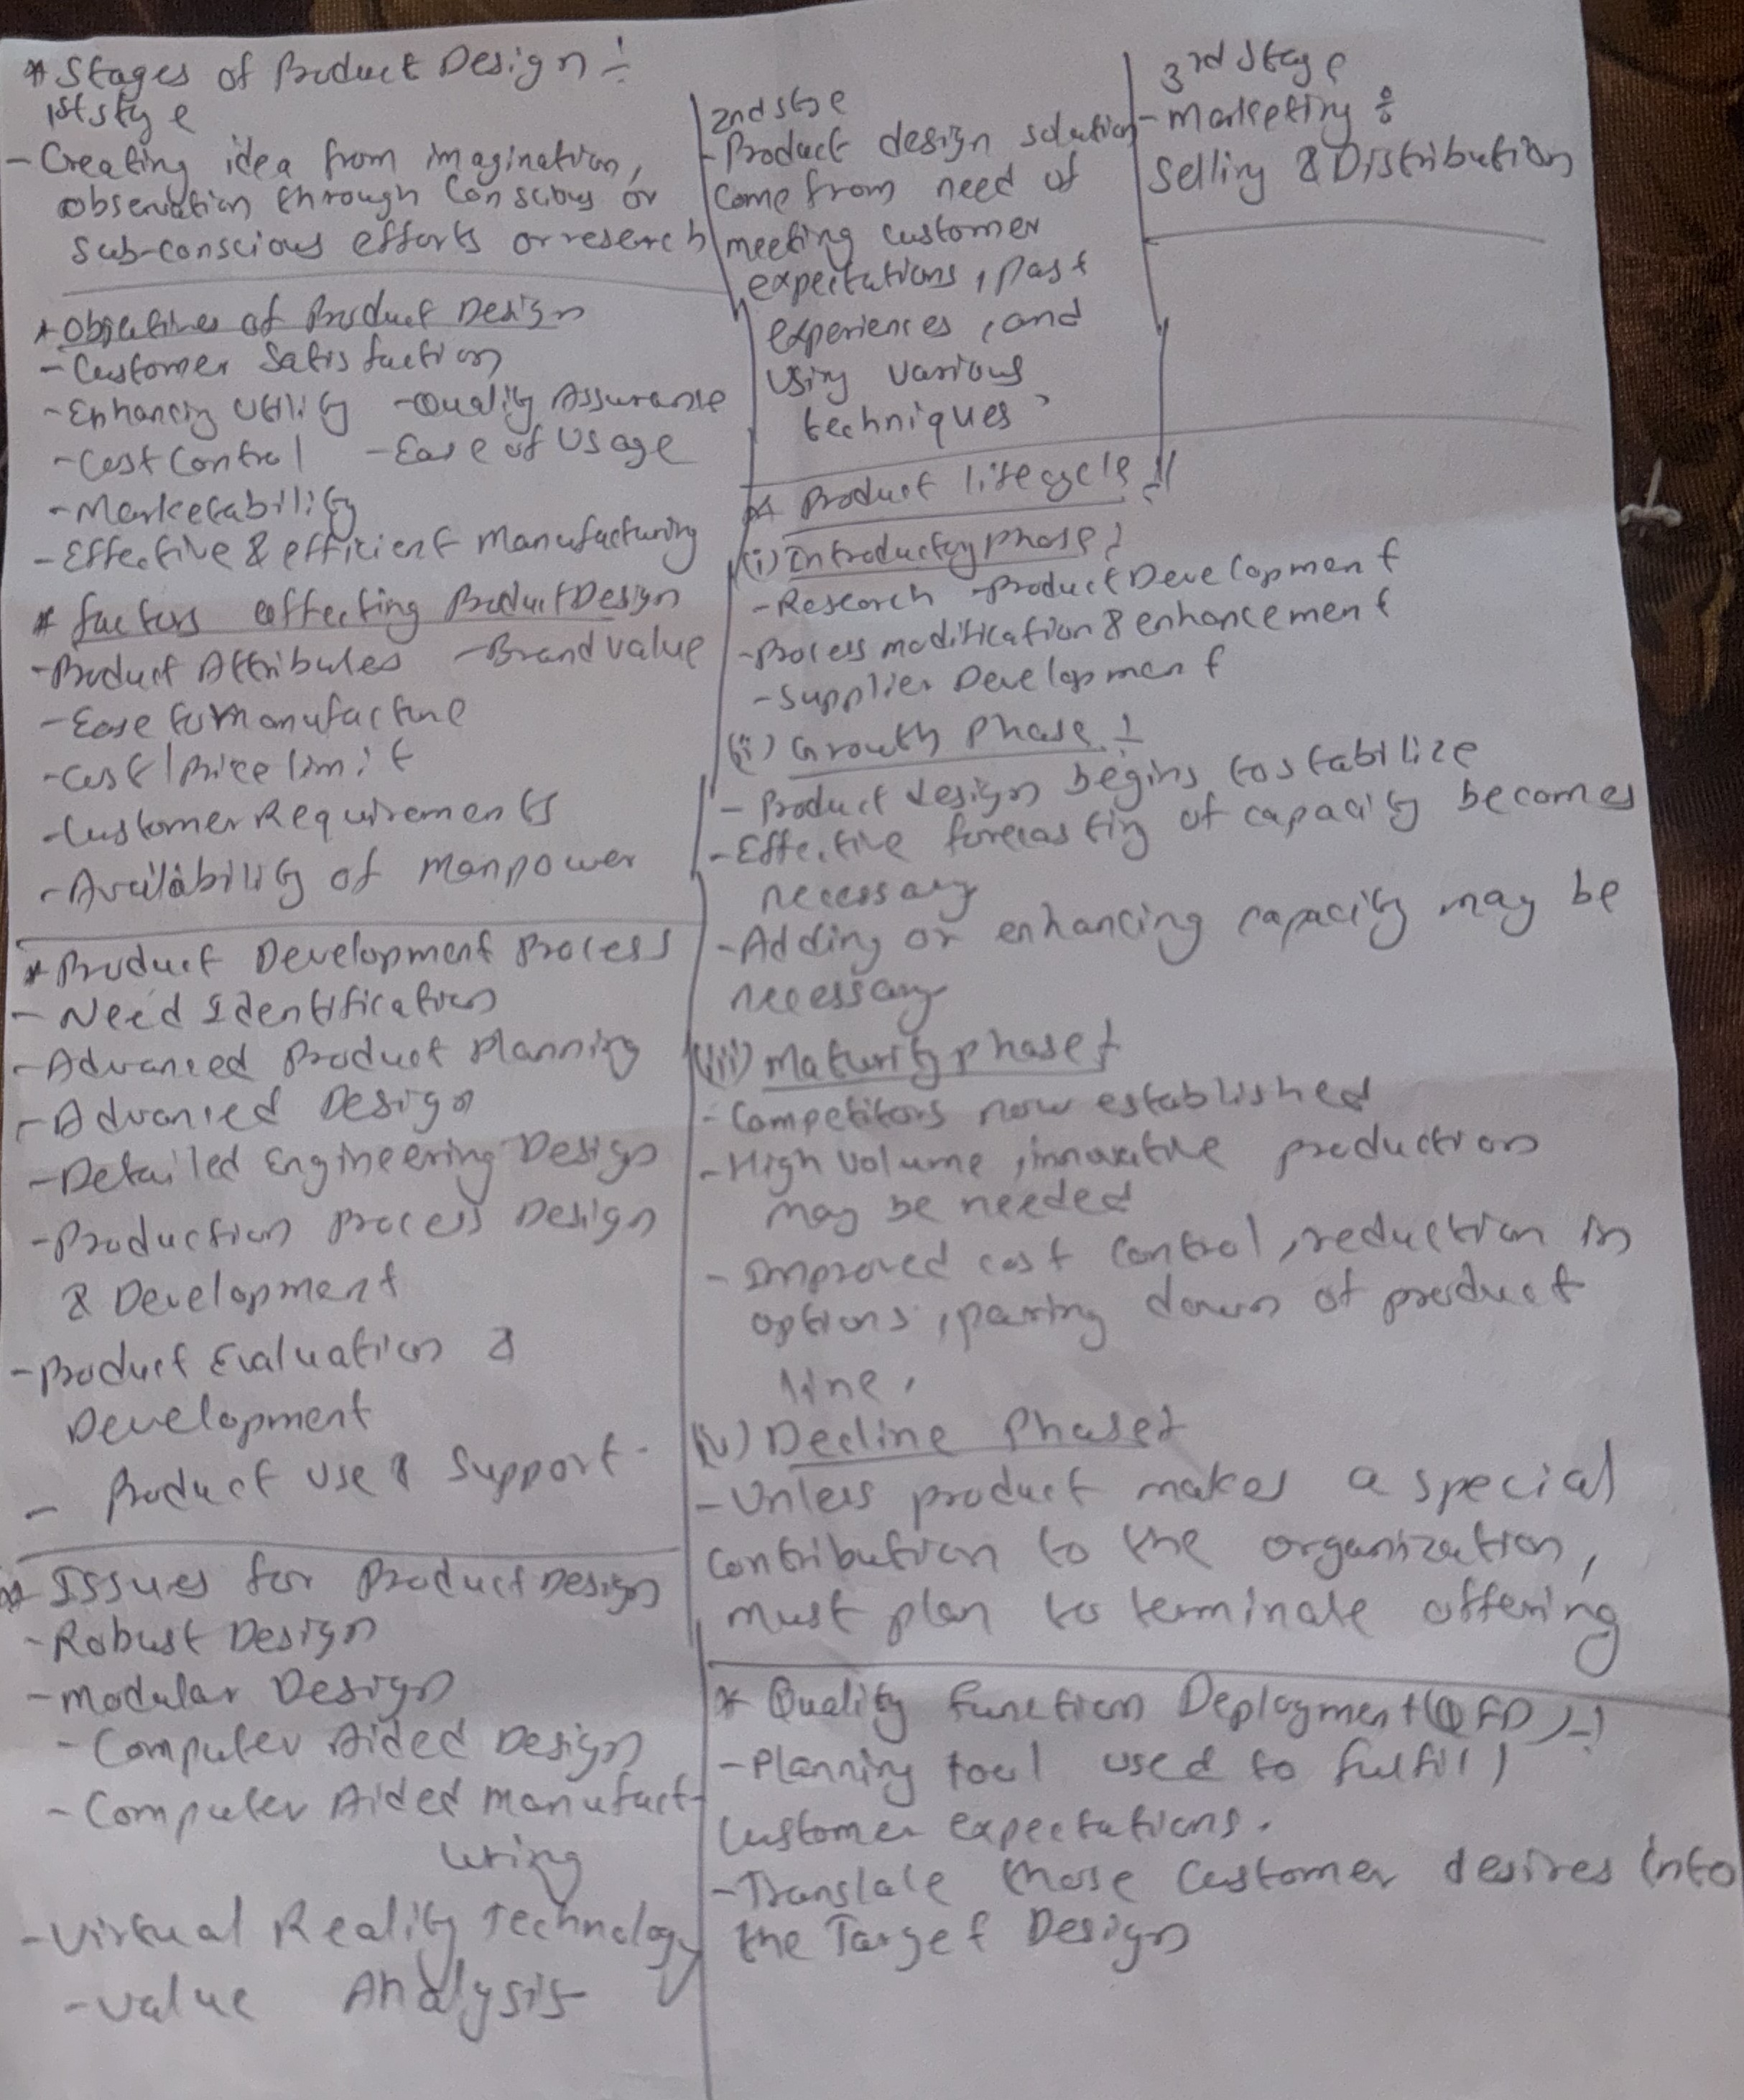 * Stages of Product Design :-
1st stge
- Creating idea from imagination,
observation through conscious or
sub-conscious efforts or reserch
2nd stge
- Product design solution
come from need of
meeting customer
expectations, past
experiences, and
using various
techniques
3rd stage
- marketing :
selling & Distribution
* Objectives of Product Design
- Customer Satisfaction
- Enhancing Utility - Quality Assurance
- Cost Control - Ease of Usage
- Marketability
- Effective & efficient manufacturing
* factors affecting Product Design
- Product Attributes - Brand value
- Ease to Manufacture
- Cost / Price limit
- Customer Requirements
- Availability of manpower
* Product Development Process
- Need Identification
- Advanced Product Planning
- Advanced Design
- Detailed Engineering Design
- Production Process Design
& Development
- Product Evaluation &
Development
- Product use & Support
* Issues for Product Design
- Robust Design
- Modular Design
- Computer Aided Design
- Computer Aided manufact-
uring
- Virtual Reality Technology
- value Analysis
* Product lifecycle :-
(i) Introductory phase :
- Research - Product Development
- Process modification & enhancement
- Supplier Development
(ii) Growth Phase :-
- Product design begins to stabilize
- Effective forecasting of capacity becomes
necessary
- Adding or enhancing capacity may be
necessary
(iii) maturity phase :-
- Competitors now established
- High volume, innovative production
may be needed
- Improved cost control, reduction in
options, paring down of product
line.
(iv) Decline Phase :-
- Unless product makes a special
contribution to the organization,
must plan to terminate offering
* Quality function Deployment (QFD) :-
- Planning tool used to fulfill
customer expectations.
- Translate those customer desires into
the Target Design